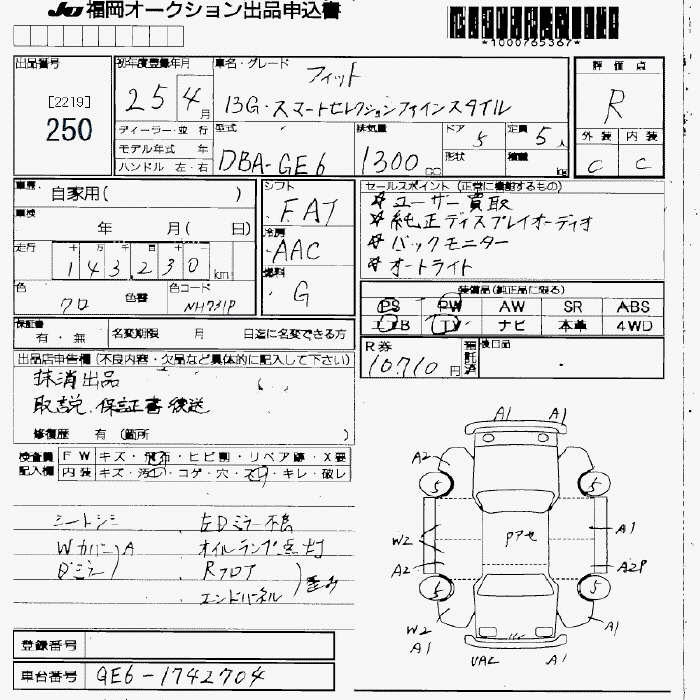 JU 福岡オークション出品申込書
*1000765367*
出品番号
[2219]
250
初年度登録年月
25 4 月
車名・グレード
フィット
13G・スマートセレクションファインスタイル
評価点
R
外装 内装
C C
ディーラー・並行
モデル年式 年
ハンドル 左・右
型式
DBA-GE6
排気量
1300 cc
ドア
5
形状
定員
5人
積載
kg
車歴
自家用( )
車検
年 月( 日)
走行
十 万 千 百 十
143,230 km
色
クロ
色替
色コード
NH731P
シフト
FAT
冷房
AAC
燃料
G
セールスポイント (正常に機能するもの)
* ユーザー買取
* 純正ディスプレイオーディオ
* バックモニター
* オートライト
装備品(純正品に限る)
PS PW AW SR ABS
エアB TV ナビ 本革 4WD
保証書
有・無
名変期限 月 日迄に名変できる方
R券
10710円
預託済
後日品
出品店申告欄 (不良内容・欠品など具体的に記入して下さい)
抹消出品
取説、保証書後送
修復歴 有 (箇所 )
検査員
記入欄
FW キズ・飛石・ヒビ割・リペア跡・X要
内装 キズ・汚レ・コゲ・穴・スレ・キレ・破レ
シートシミ
Wカバー A
Dミラー
左Dミラー不良
オイルランプ点灯
Rフロア
エンドパネル
歪み
A1 A1
A2
5 5
W2
A1
Pアセ
A2
A2P
5 5
W2
A1
UA2
A1
登録番号
車台番号 GE6-1742704